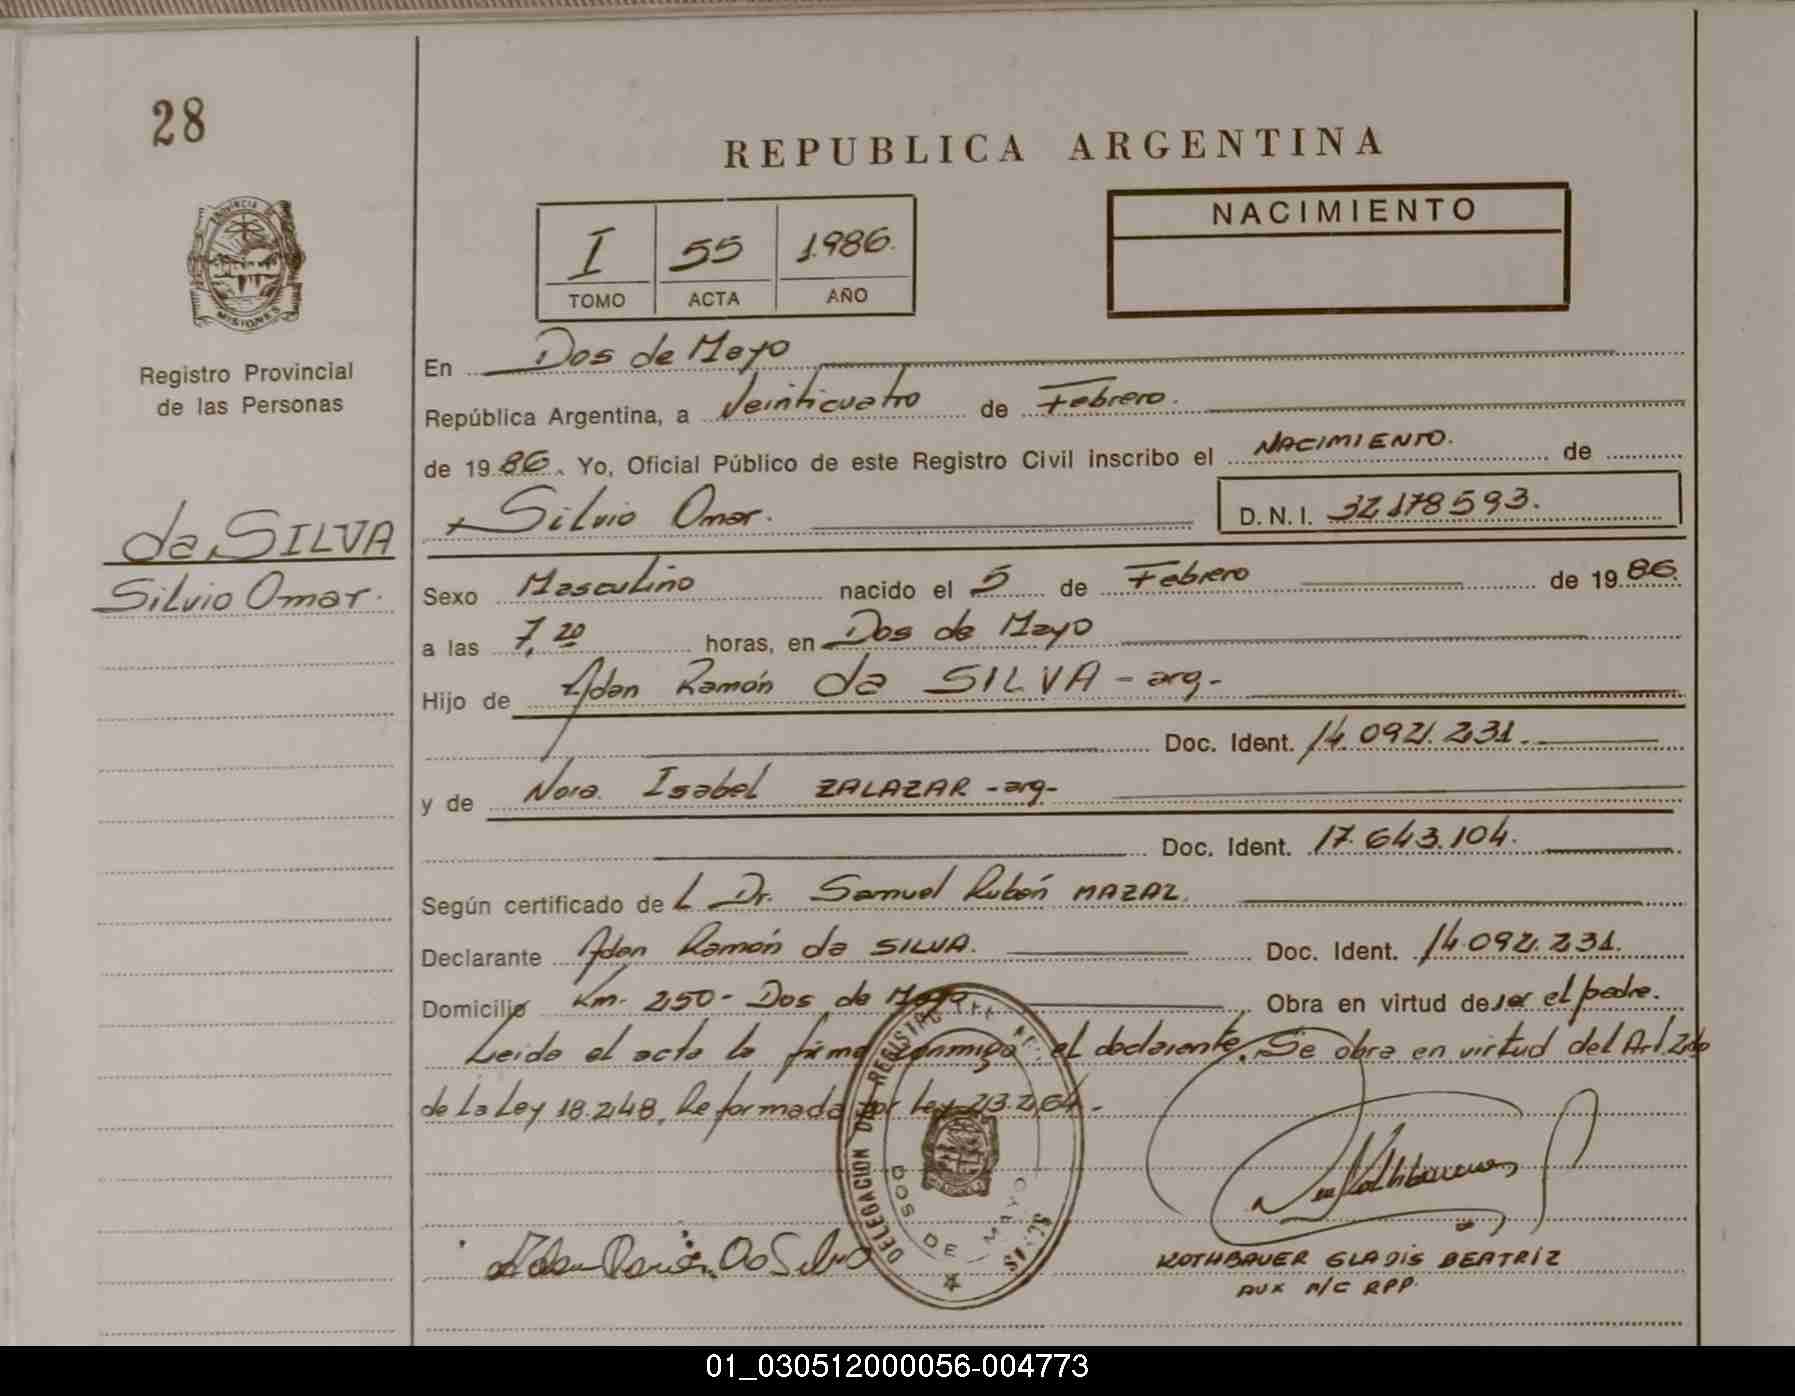 28
REPUBLICA ARGENTINA
PROVINCIA DE
MISIONES
Registro Provincial
de las Personas
I 55 1986.
TOMO ACTA AÑO
NACIMIENTO
En Dos de Mayo
República Argentina, a Veinticuatro de Febrero.
de 1986. Yo, Oficial Público de este Registro Civil inscribo el NACIMIENTO. de
da SILVA
Silvio Omar.
Silvio Omar. D.N.I. 32178593.
Sexo Masculino nacido el 5 de Febrero de 1986.
a las 7,20 horas, en Dos de Mayo
Hijo de Adan Ramón da SILVA - arg-
Doc. Ident. 14.092.231.
y de Nora Isabel ZALAZAR - arg-
Doc. Ident. 17.643.104.
Según certificado del Dr. Samuel Rubén MAZAL.
Declarante Adan Ramón da SILVA. Doc. Ident. 14.092.231.
Domicilio Km. 250- Dos de Mayo Obra en virtud de ser el padre.
Leida el acta la firma conmigo el declarante. Se obra en virtud del Art 2do
de la Ley 18.248, Reformada por Ley 23.264.-
DELEGACION DEL REGISTRO
DOS DE MAYO
ROTHBAUER GLADIS BEATRIZ
AUX A/C RPP.
01_030512000056-004773